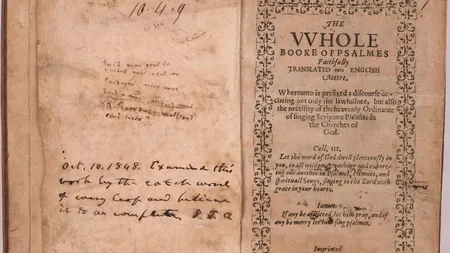 10.4.9
Oct. 10. 1848. Examined this
work by the catch word
of every and believe
it to be complete
THE
VVHOLE
BOOKE OF PSALMES
Faithfully
TRANSLATED into ENGLISH
Metre.
Whereunto is prefixed a discourse de-
claring not only the lawfullnes, but also
the necessity of the heavenly Ordinance
of singing Scripture Psalmes in
the Churches of
God.
Coll. III.
Let the word of God dwell plenteously in
you, in all wisdome, teaching and exhort-
ing one another in Psalmes, Himnes, and
spirituall Songs, singing to the Lord with
grace in your hearts.
Iames v.
If any be afflicted, let him pray, and if
any be merry let him sing psalmes.
Imprinted